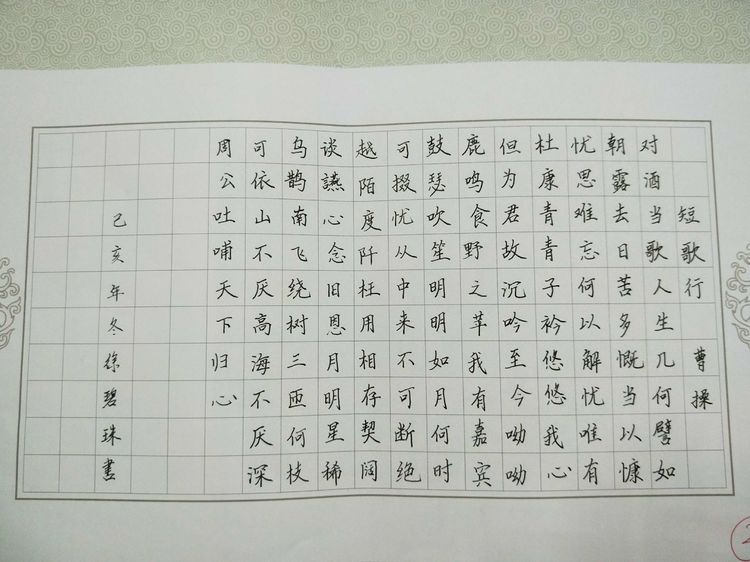 短歌行 曹操
对酒当歌人生几何譬如
朝露去日苦多慨当以慷
忧思难忘何以解忧唯有
杜康青青子衿悠悠我心
但为君故沉吟至今呦呦
鹿鸣食野之苹我有嘉宾
鼓瑟吹笙明明如月何时
可掇忧从中来不可断绝
越陌度阡枉用相存契阔
谈讌心念旧恩月明星稀
乌鹊南飞绕树三匝何枝
可依山不厌高海不厌深
周公吐哺天下归心
己亥年冬徐碧珠書